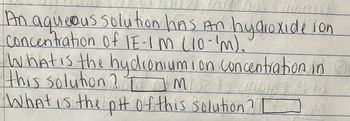 An aqueous solution has an hydroxide ion
concentration of 1E-1 M (10⁻¹M).
What is the hydronium ion concentration in
this solution? M
What is the pH of this solution?